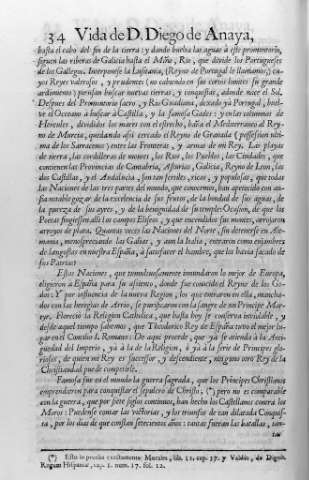 34 Vida de D. Diego de Anaya,
hasta el cabo del fin de la tierra: y dando buelta las aguas à este promontorio,
siguen las riberas de Galicia hasta el Miño, Rio, que divide los Portugueses
de los Gallegos. Interponese la Lusitania, (Reyno de Portugal le llamamos;) cu-
yos Reyes valerosos, y prudentes (no cabiendo en sus cortos limites su grande
ardimiento) pensaron buscar nuevas tierras, y conquistas, adonde nace el Sol.
Despues del Promontorio sacro, y Rio Guadiana, dexado ya Portugal, buel-
ve el Oceano à buscar à Castilla, y la famosa Gades: y en las columnas de
Hercules, divididos los mares con el estrecho, baña el Mediterraneo al Rey-
no de Murcia, quedando assi cercado el Reyno de Granada (possession ulti-
ma de los Sarracenos) entre las Fronteras, y armas de mi Rey. Las playas
de tierra, las cordilleras de montes, los Rios, los Pueblos, las Ciudades, que
contienen las Provincias de Cantabria, Asturias, Galicia, Reyno de Leon, las
dos Castillas, y el Andalucia, son tan fertiles, ricas, y populosas, que todas
las Naciones de las tres partes del mundo, que conocemos, han apetecido con an-
sia notable gozar de la excelencia de sus frutos, de la bondad de sus aguas, de
la pureza de sus ayres, y de la benignidad de su temple: Ocasion, de que los
Poetas fingiessen alli los campos Eliseos, y que encendidos sus montes, arrojaron
arroyos de plata. Quantas veces las Naciones del Norte, sin detenerse en Ale-
mania, menospreciando las Galias, y aun la Italia, entraron como enjambres
de langostas en nuestra España, à satisfacer el hambre, que los havia sacado de
sus Patrias?
Estas Naciones, que tumultuosamente inundaron lo mejor de Europa,
eligieron à España para su assiento, donde fue conocido el Reyno de los Go-
dos: Y por influencia de la nueva Region, los que entraron en ella, mancha-
dos con las heregias de Arrio, se purificaron con la sangre de un Principe Mar-
tyr. Floreciò la Religion Catholica, que hasta hoy se conserva inviolable, y
desde aquel tiempo sabemos, que Theodorico Rey de España tuvo el mejor lu-
gar en el Concilio I. Romano: De aqui procede, que ya se atienda à la Anti-
guedad del Imperio, yà à la de la Religion, ò yà à la serie de Principes glo-
riosos, de quien mi Rey es successor, y descendiente, ninguno otro Rey de la
Christiandad puede competirle.
Famosa fue en el mundo la guerra sagrada, que los Principes Christianos
emprendieron para conquistar el sepulcro de Christo; (*) pero no es comparable
con la guerra, que por siete siglos continuos, han hecho los Castellanos contra los
Moros: Puedense contar las victorias, y los triunfos de tan dilatada Conquis-
ta, por los dias de que constan setecientos años: tantas fueron las batallas, tan-
(*) Esto lo prueba exactamente Morales, lib. 12. cap. 37. y Valdès, de Dignit.
Regum Hispaniæ, cap. 1. num. 17. fol. 12.